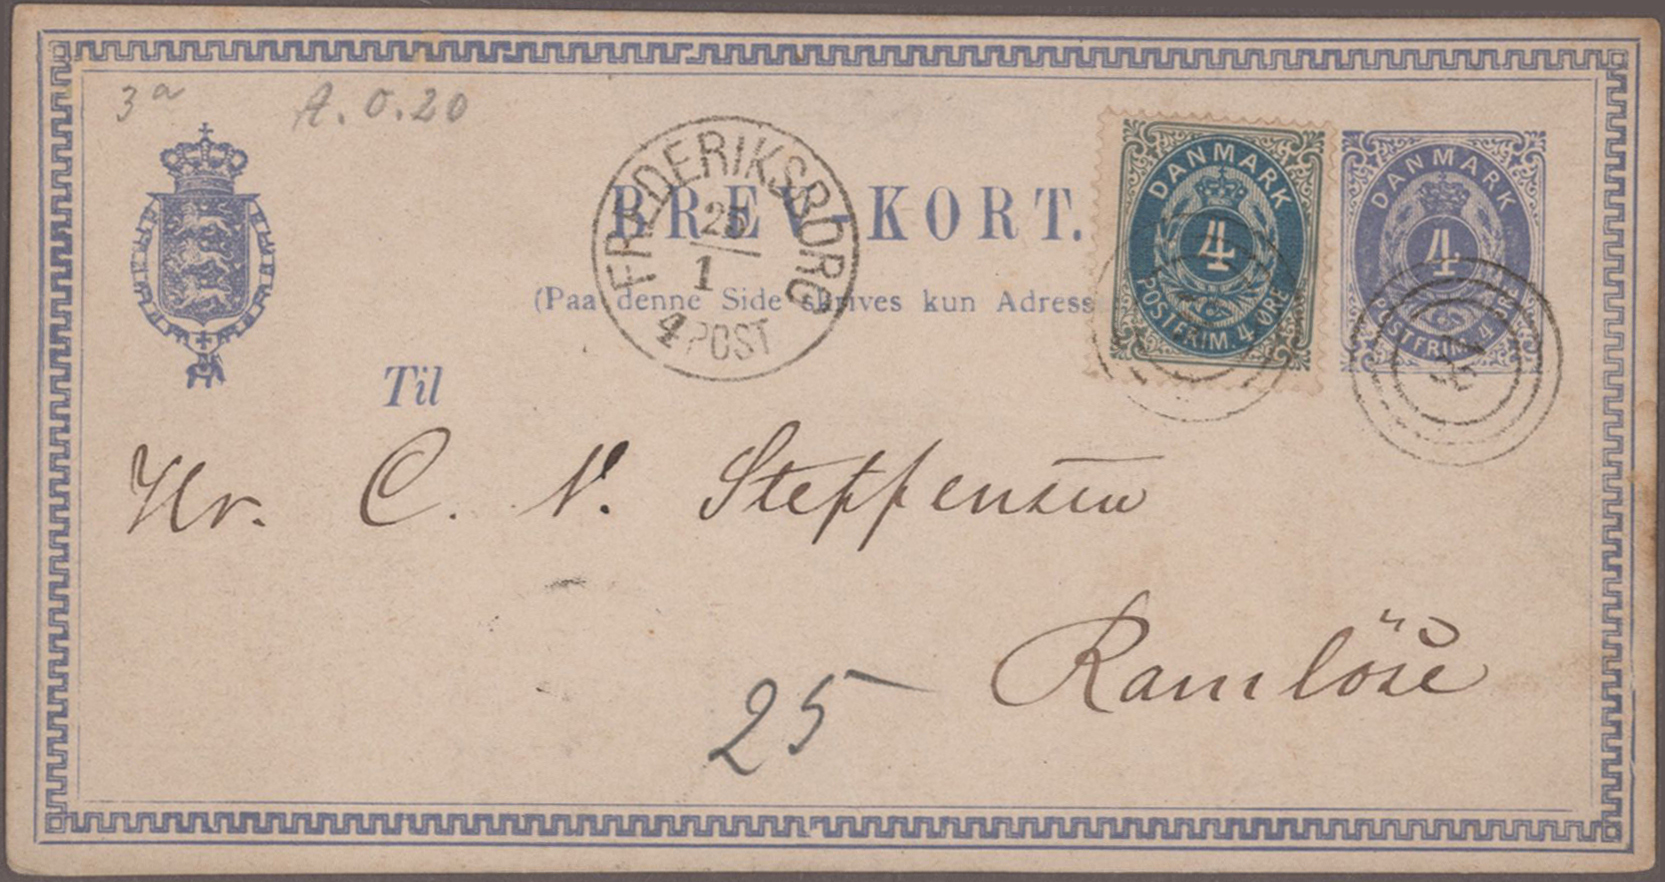 3a A.O.20
FREDERIKSBORG
25
1
4 POST
BREV-KORT.
(Paa denne Side skrives kun Adress
DANMARK
4
POSTFRIM. 4 ØRE
DANMARK
4
POSTFRIM. 4 ØR
Til
Hr. C. N. Steffensen
Ramlöse
25